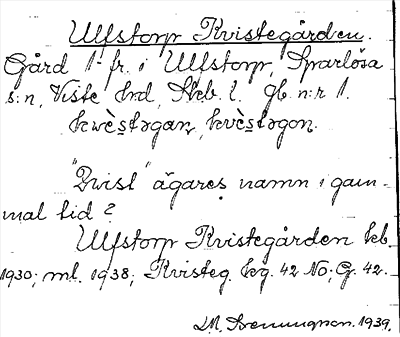 Ulfstorp Kvistegården.
Gård 1 fr. i Ulfstorp, Sparlösa
s:n, Viste hrd, Skb. l. Jb. n:r 1.
kwès̱təgan, kvès̱təgon.
"Qvist" ägares namn i gam-
mal tid?
Ulfstorp Kvistegården Jeb.
1930; ml. 1938; Kvisteg. kg. 42 No; G. 42.
1939.